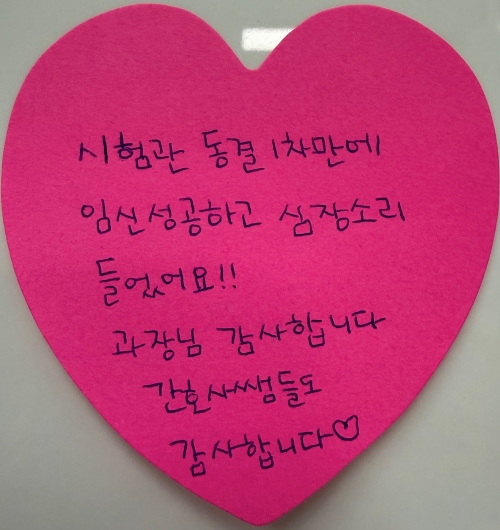 시험관 동결 1차만에
임신성공하고 심장소리
들었어요!!
과장님 감사합니다
간호사쌤들도
감사합니다♡